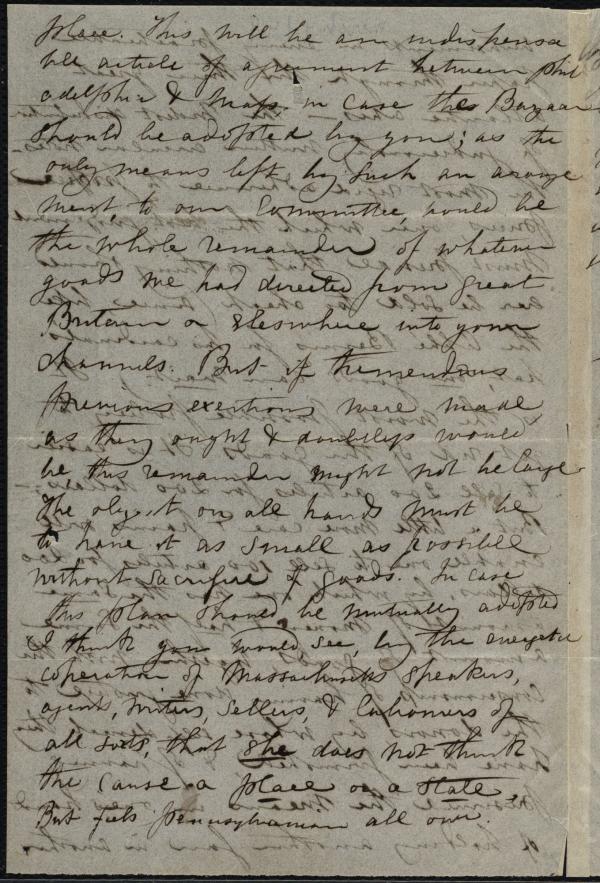 place. This will be an indispensa
ble article of agreement between Phil
adelphia & Mass. in case the Bazaar
should be adopted by you; as the
only means left by such an arrange
ment, to our Committee, would be
the whole remainder of whatever
goods we had directed from Great
Britain or elsewhere into your
channels. But if tremendous
previous exertions were made,
as they ought & doubtless would
be this remainder might not be large.
The object on all hands must be
to have it as small as possible
without sacrifice of goods. In case
this plan should be mutually adopted
I think you would see, by the energetic
coperation of Massachusetts speakers,
agents, writers, sellers, & customers of
all sorts, that she does not think
the cause a place or a state,
But feels Pennsylvanian all over.